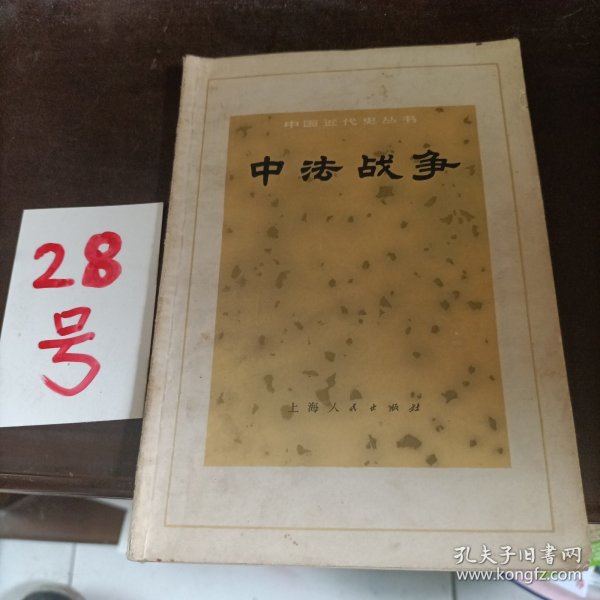 中国近代史丛书
中法战争
上海人民出版社
28
号
孔夫子旧书网
www.kongfz.com